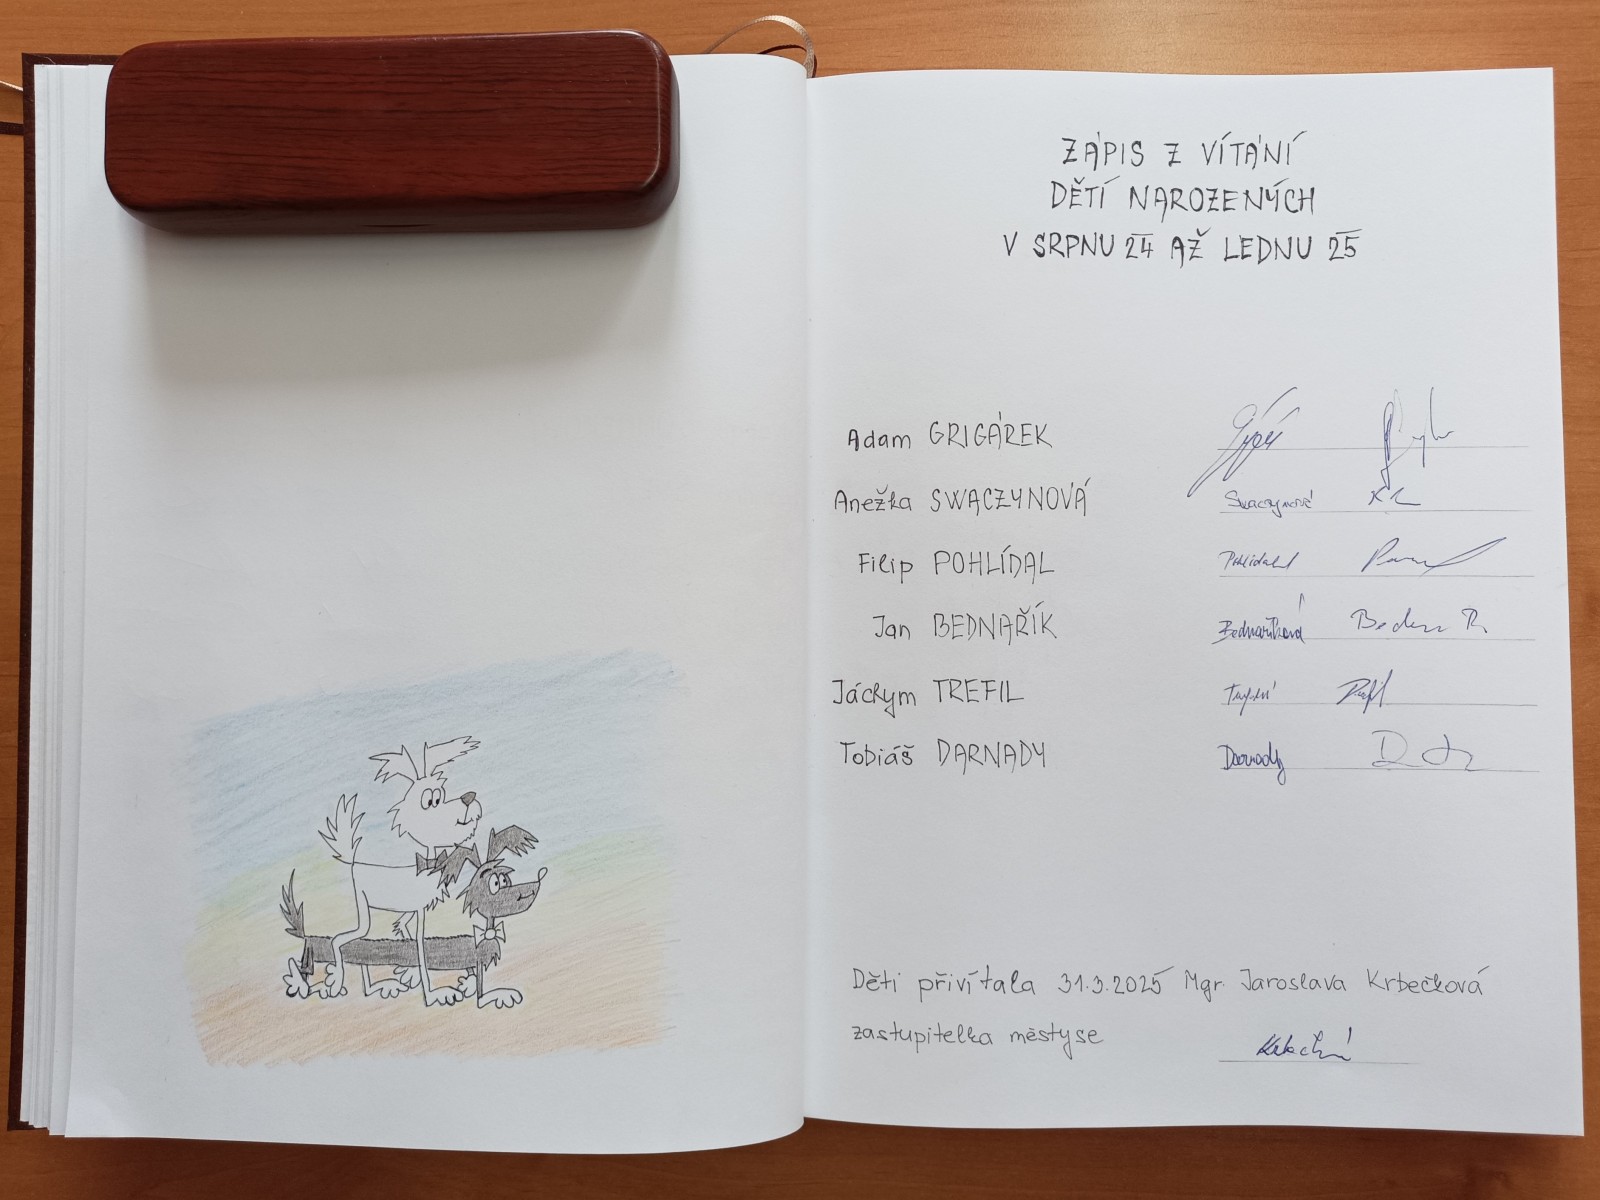 ZÁPIS Z VÍTÁNÍ
DĚTÍ NAROZENÝCH
V SRPNU 24 AŽ LEDNU 25
Adam GRIGÁREK
Anežka SWACZYNOVÁ Swaczynová
Filip POHLÍDAL Pohlídal
Jan BEDNAŘÍK Bednaříková
Jáchym TREFIL
Tobiáš DARNADY Darnady
Děti přivítala 31.3.2025 Mgr. Jaroslava Krbečková
zastupitelka městyse